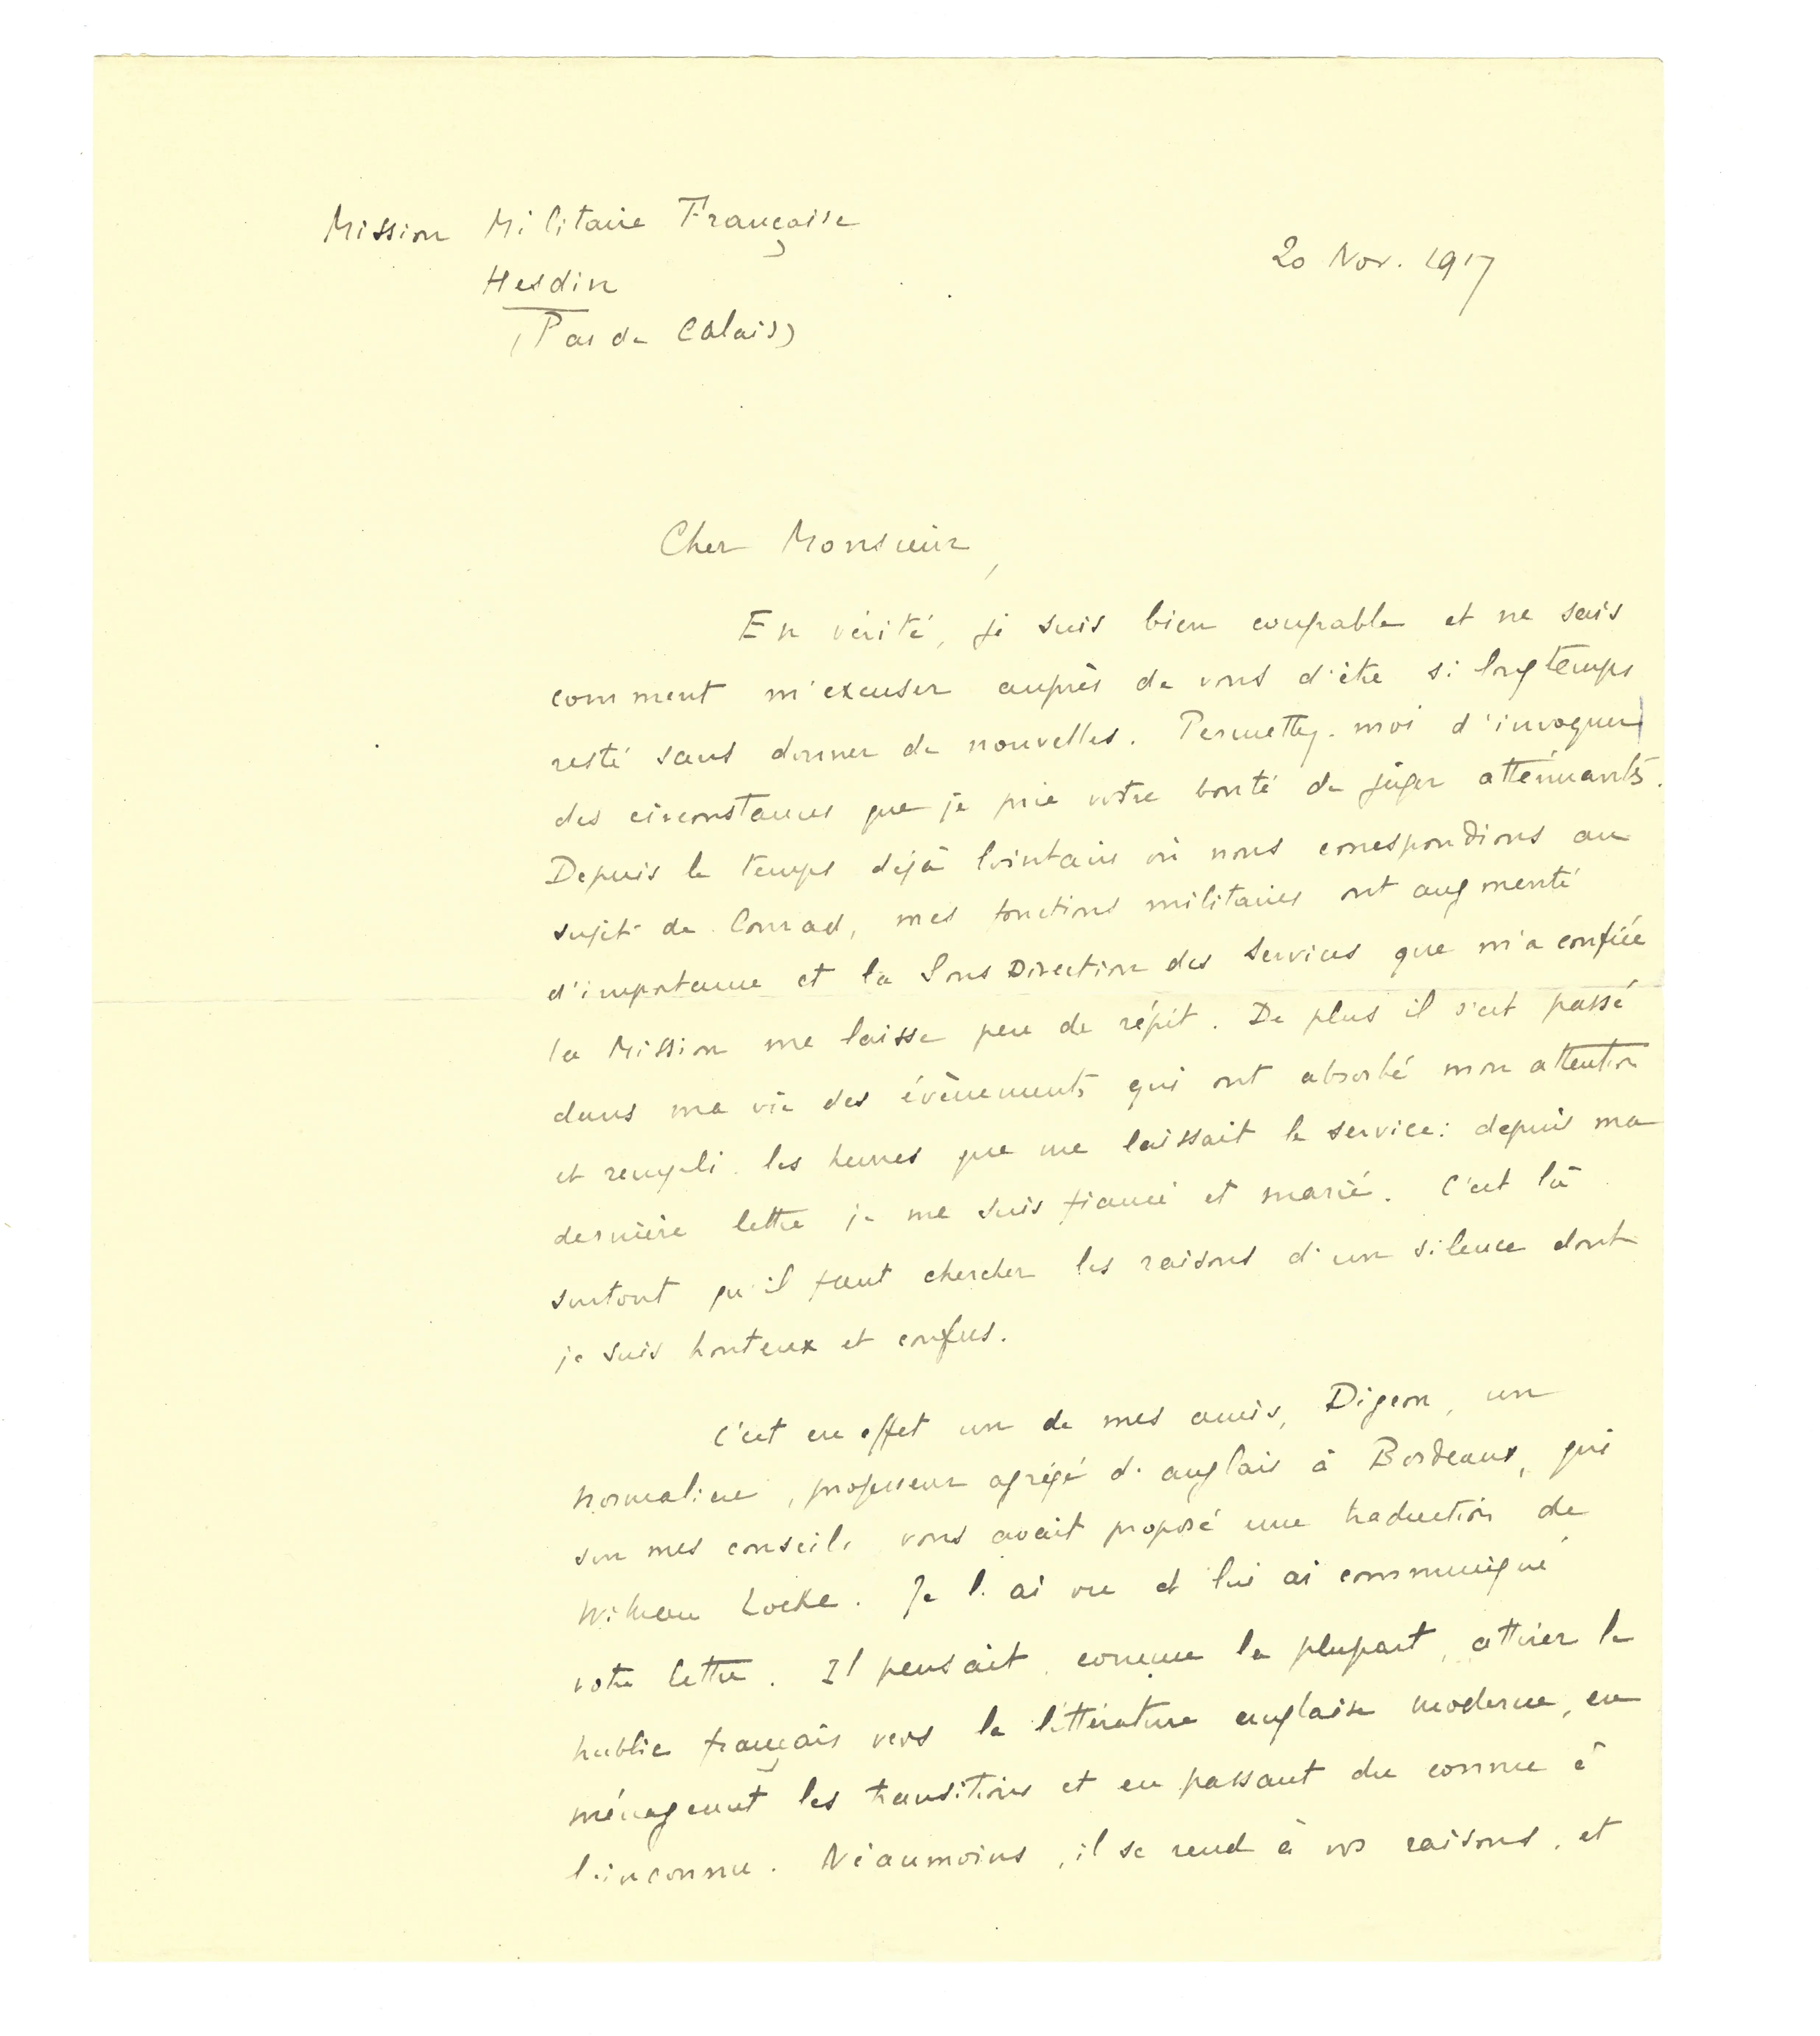 Mission Militaire Française
20 Nov. 1917
Hesdin
(Pas de Calais)
Cher Monsieur,
En vérité, je suis bien coupable et ne sais
comment m'excuser auprès de vous d'être si longtemps
resté sans donner de nouvelles. Permettez-moi d'invoquer
des circonstances que je prie votre bonté de juger atténuants.
Depuis le temps déjà lointain où nous correspondions au
sujet de Conrad, mes fonctions militaires ont augmenté
d'importance et la Sous Direction des Services que m'a confiée
la Mission me laisse peu de répit. De plus il s'est passé
dans ma vie des évènements qui ont absorbé mon attention
et rempli les heures que me laissait le service: depuis ma
dernière lettre je me suis fiancé et marié. C'est là
surtout qu'il faut chercher les raisons d'un silence dont
je suis honteux et confus.
C'est en effet un de mes amis, Digeon, un
normalien, professeur agrégé d'anglais à Bordeaux, qui
sur mes conseils vous avait proposé une traduction de
Locke. Je l'ai vu et lui ai communiqué
votre lettre. Il pensait, comme la plupart, attirer le
public français vers la littérature anglaise moderne, en
ménageant les transitions et en passant du connu à
l'inconnu. Néaumoins, il se rend à vos raisons, et